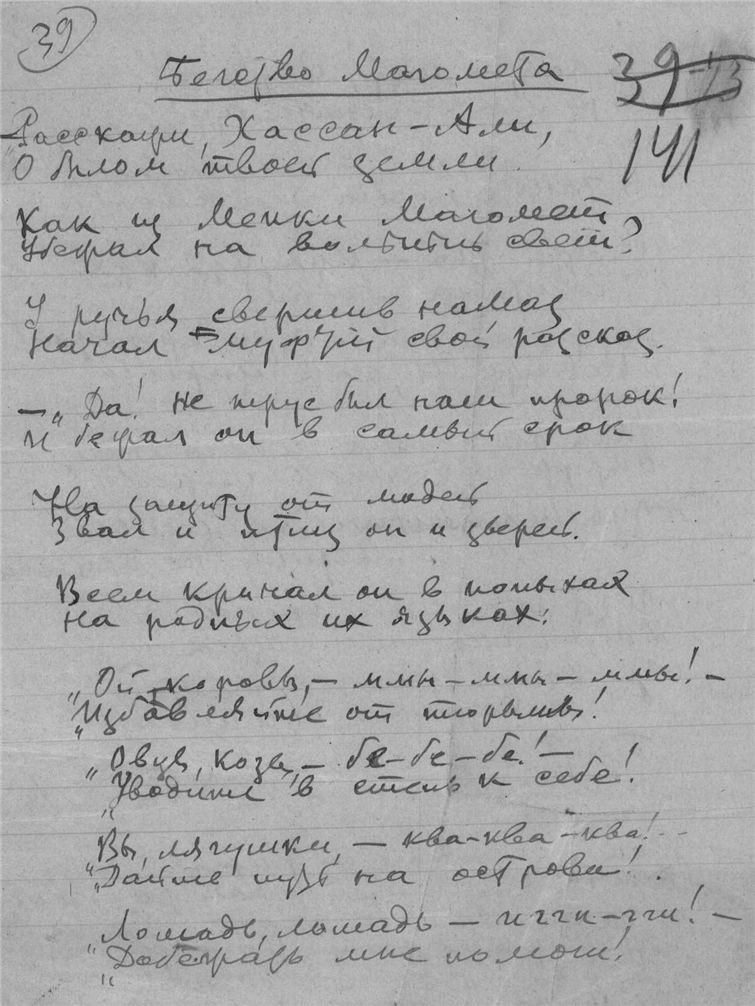 39
Бегство Магомета
39-13
141
„Расскажи, Хассан-Али,
О былом твоей земли.
Как из Мекки Магомет
Убежал на вольный свет?
У ручья свершив намаз
Начал свой рассказ.
– „Да! Не трус был наш пророк!
И бежал он в самый срок
На защиту от людей
Звал и птиц он и зверей.
Всем кричал он в попыхах
На родных их языках:
„Ой коровы, – ммы – ммы – ммы! –
„Избавляйте от тюрьмы!
„Овцы, козы, – бе – бе – бе! –
„Уводите в степь к себе!
„Вы, лягушки, – ква-ква-ква! –
„Дайте путь на острова!
„Лошадь, лошадь – игги-гги! –
„Добежать мне помоги!